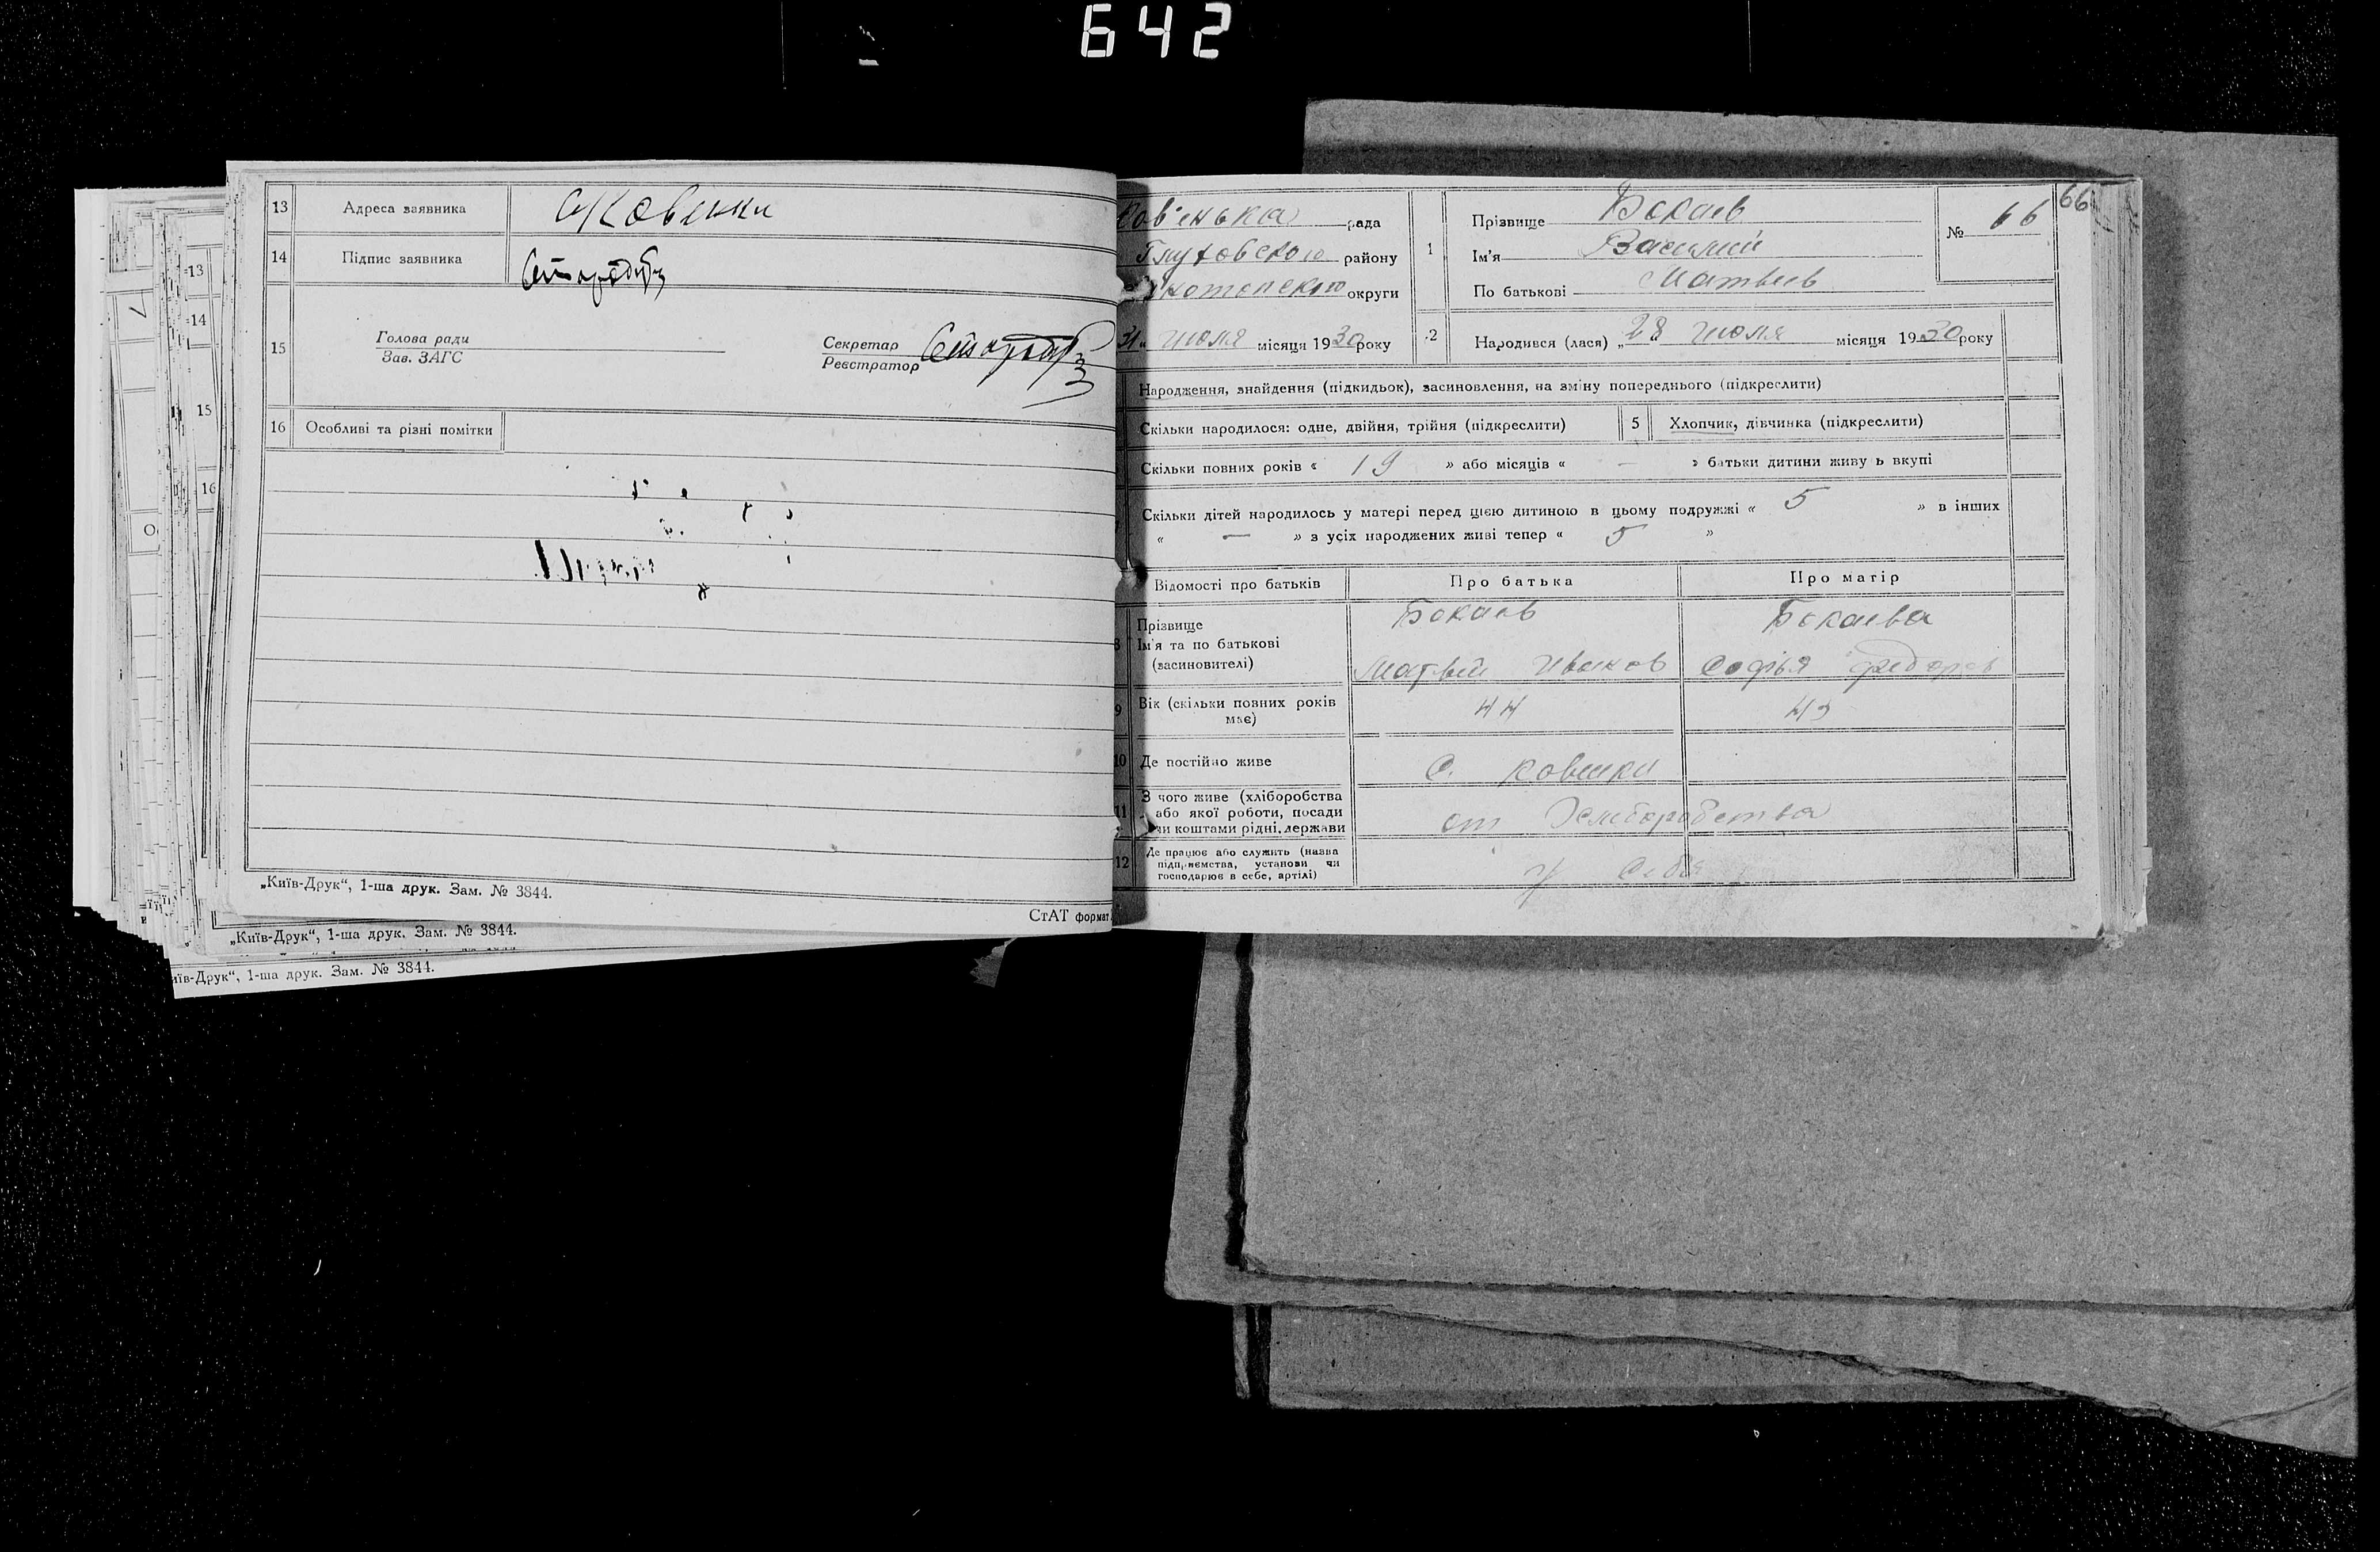 642
13 Адреса заявника с Ковенки
14 Підпис заявника Стародуб
15 Голова ради
Зав. ЗАГС
Секретар
Реєстратор
16 Особливі та різні помітки
„Київ-Друк“, 1-ша друк. Зам. № 3844.
СтАТ формат
„Київ-Друк“, 1-ша друк. Зам. № 3844.
иїв-Друк“, 1-ша друк. Зам. № 3844.
13
14
15
16
66
Ков'енька рада
Глуховского району
Конотопского округи
31 " июля місяця 1930 року
1 Прізвище Бокаев
Ім'я Василий
По батькові Матвеев
№ 66
2 Народився (лася) „ 28 июля місяця 1930 року
Народження, знайдення (підкидьок), засиновлення, на зміну попереднього (підкреслити)
Скільки народилося: одне, двійня, трійня (підкреслити) 5 Хлопчик, дівчинка (підкреслити)
Скільки повних років « 19 » або місяців « — » батьки дитини живу ь вкупі
Скільки дітей народилось у матері перед цією дитиною в цьому подружжі « 5 » в інших
« — » з усіх народжених живі тепер « 5 »
Відомості про батьків Про батька Про матір
8 Прізвище
Ім'я та по батькові
(засиновителі)
Бокаев
Матвей Иванов
Бокаева
Софья Федоров
9 Вік (скільки повних років
має)
44 43
10 Де постійно живе С. Ковенки
11 З чого живе (хліборобства
або якої роботи, посади
чи коштами рідні, держави
от Хлиборобства
12 Де працює або служить (назва
підприємства, установи чи
господарює в себе, артілі)
у себя